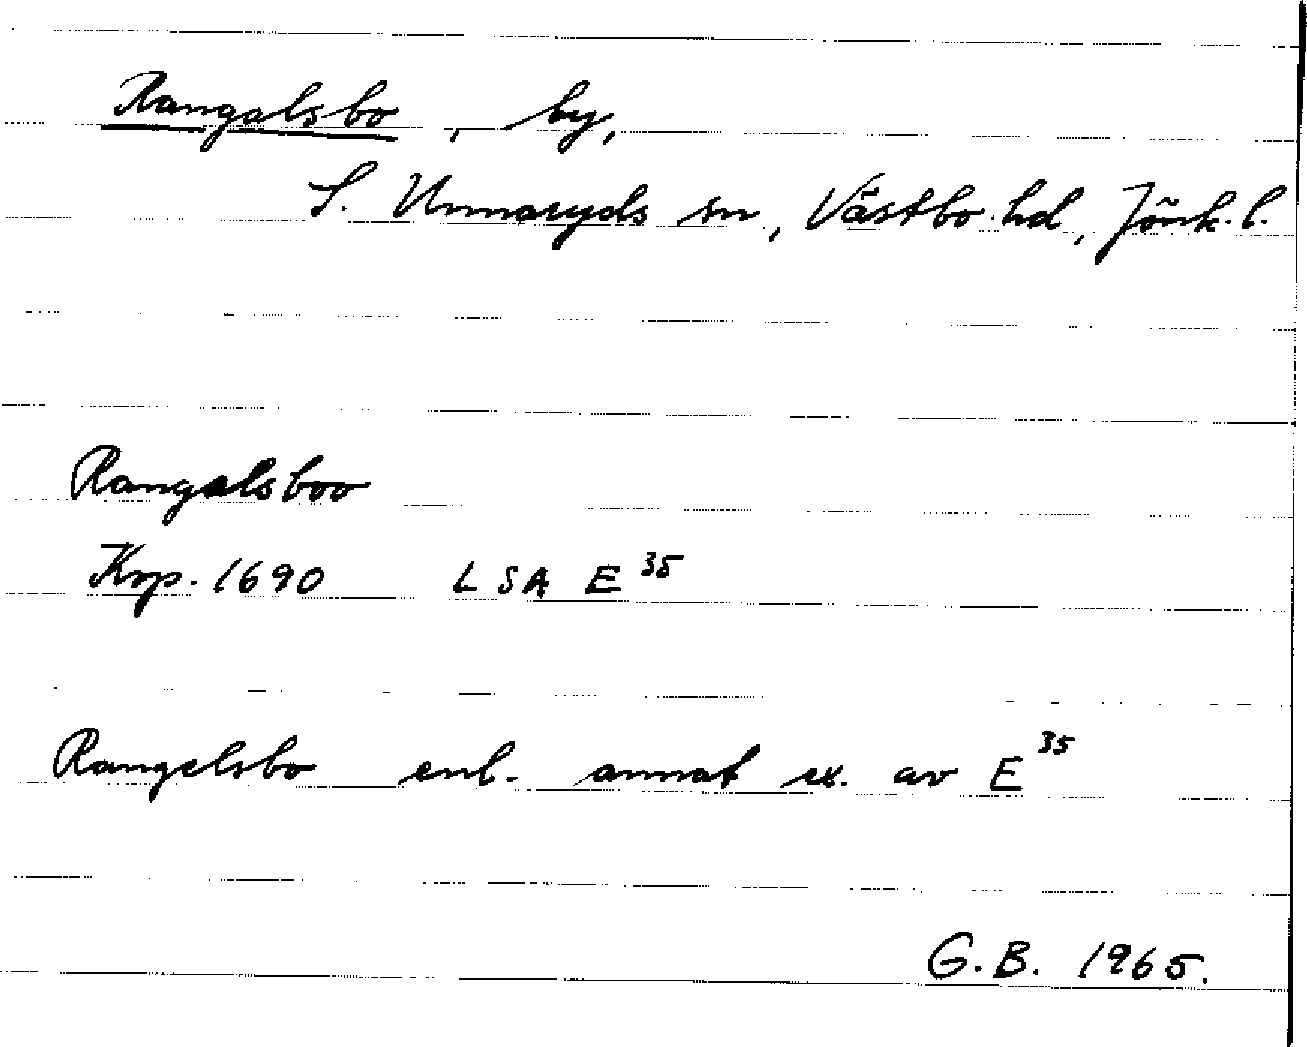 Rangalsbo, by,
S. Unnaryds sn, Västbo hd, Jönk. l.
Rangalsboo
Krp. 1690 LSA E 35
Rangelsbo enl. annat ex. av E 35
G.B. 1965.